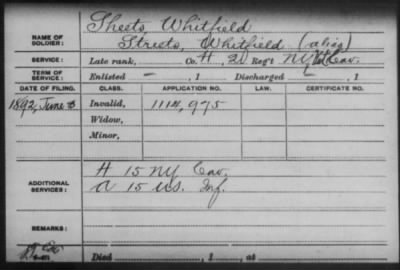 NAME OF SOLDIER: Sheets, Whitfield
Streets, Whitfield (alias)
SERVICE: Late rank, Co. H, 2D Reg't NY Cav.
TERM OF SERVICE: Enlisted – , 1 Discharged – , 1
DATE OF FILING. CLASS. APPLICATION NO. LAW. CERTIFICATE NO.
1892, June Invalid, 1114,975
Widow,
Minor,
ADDITIONAL SERVICES: H 15 NY Cav.
15 US. Inf.
REMARKS:
Died , 1 , at